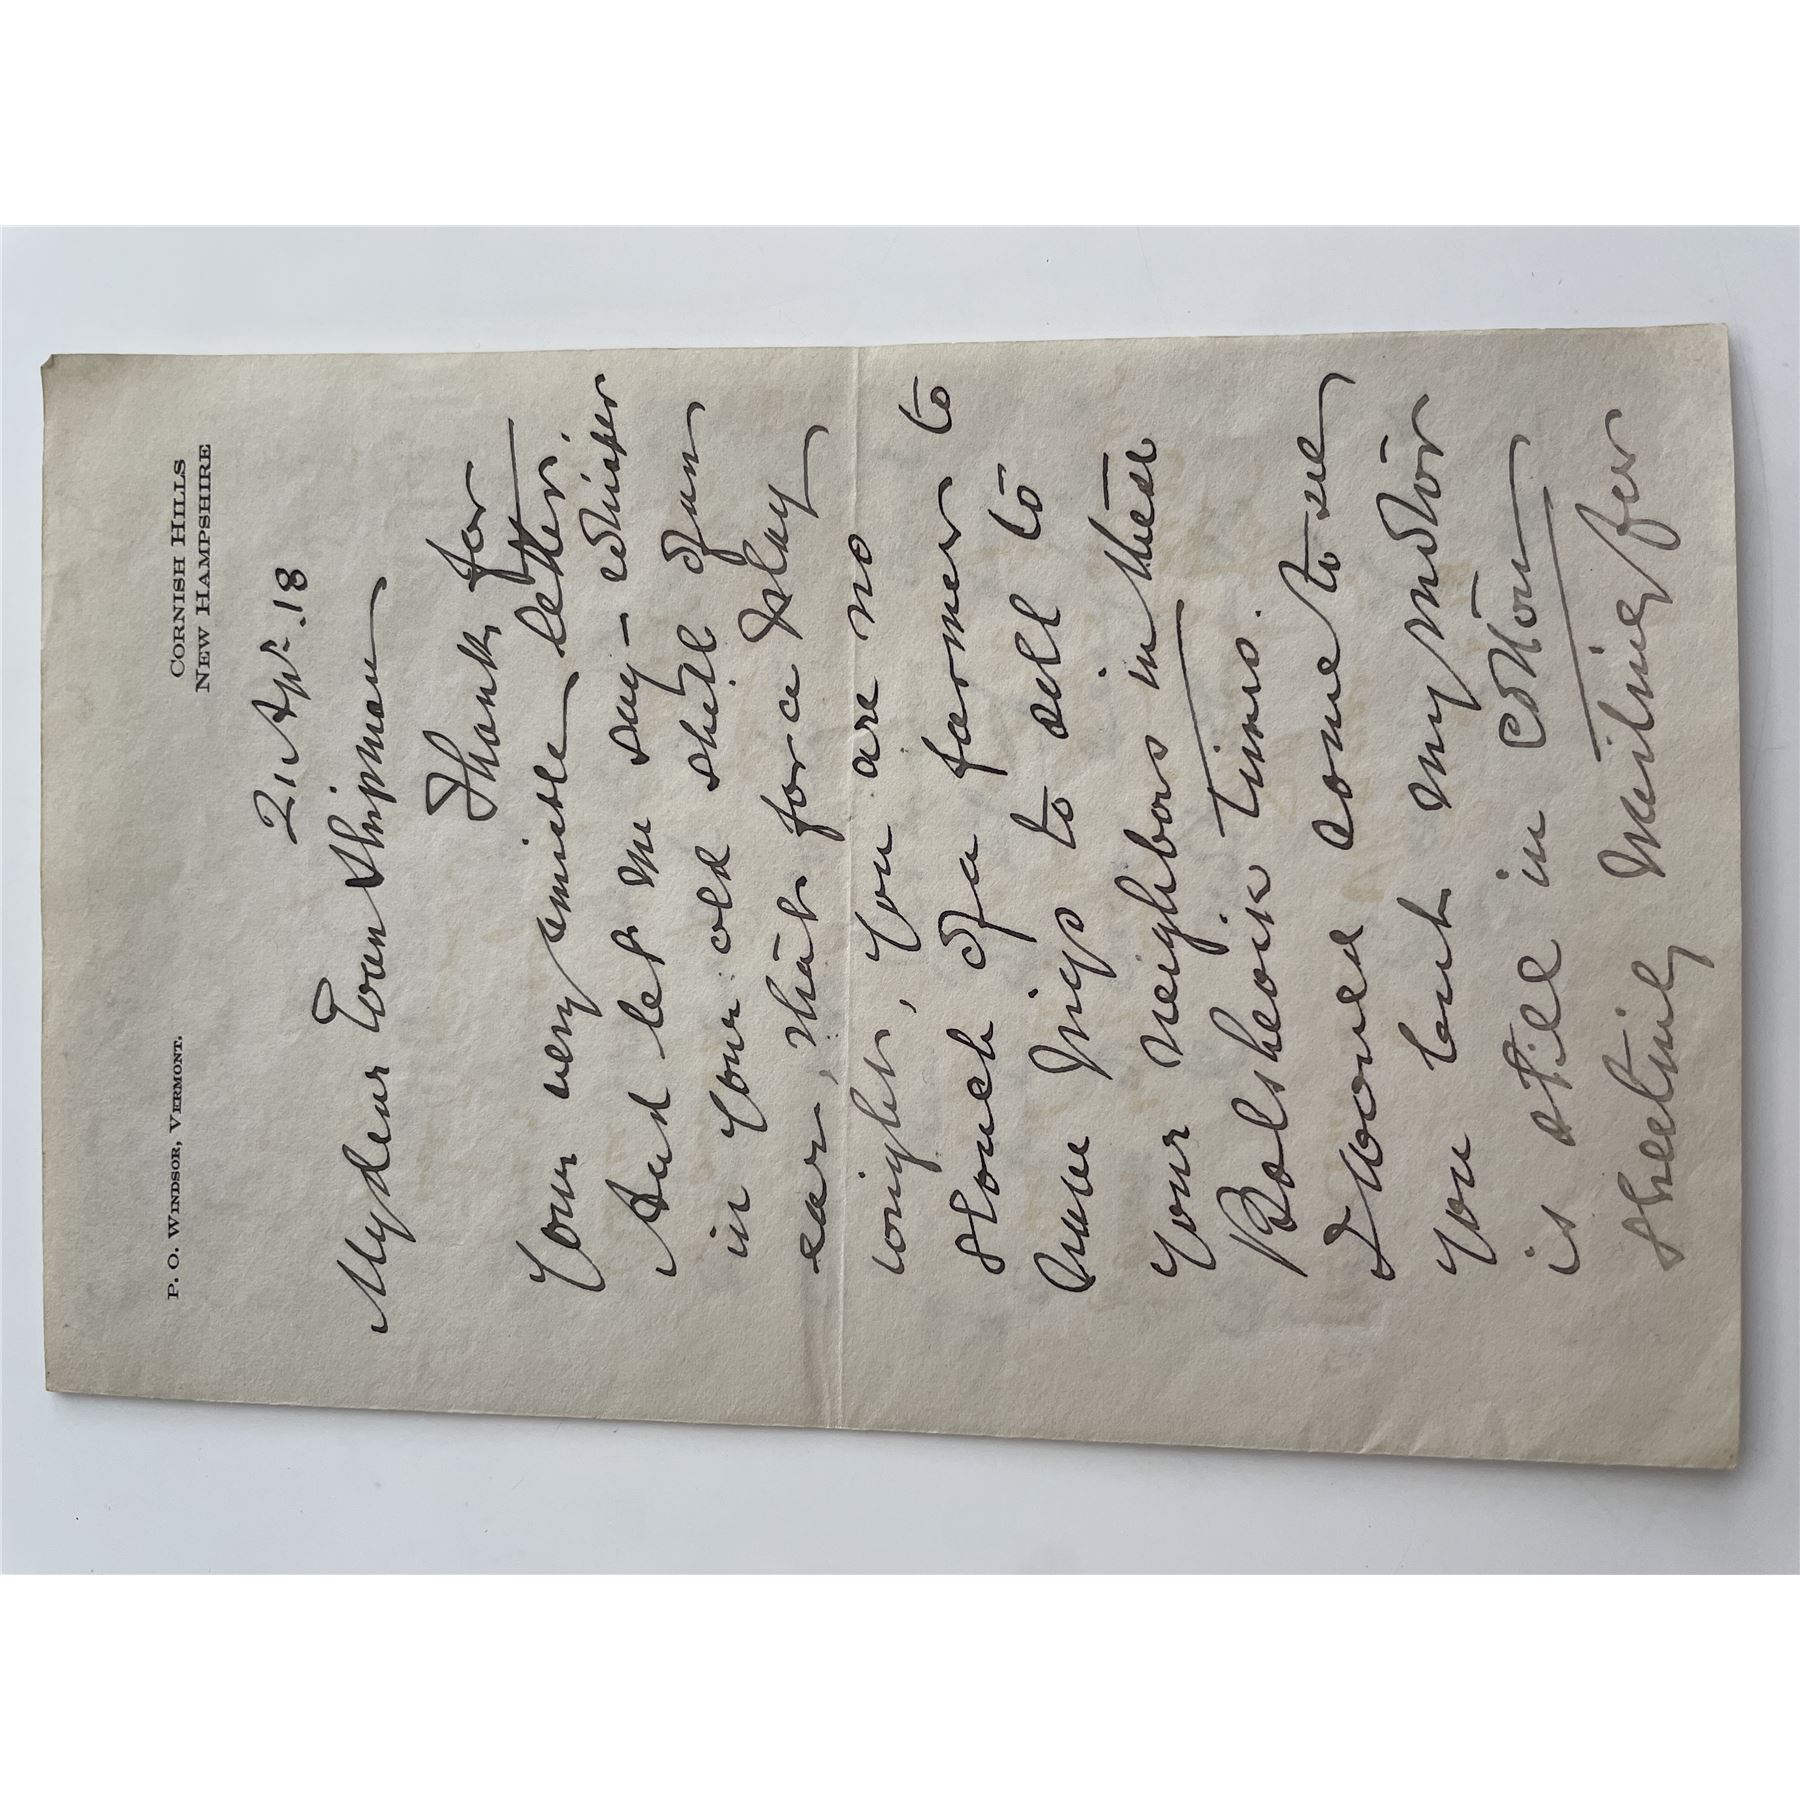 P. O. WINDSOR, VERMONT.
CORNISH HILLS
NEW HAMPSHIRE
21 Apr. 18
My dear Shipman
Thanks for
Your very amiable letter.
And let me say — whisper
in your old shell of an
ear, that for a play
wright, you are no
slouch of a farmer to
have pigs to sell to
Your neighbors in these
Bolsheviki times.
I would come to see
you but my motor
is still in cotton
sheeting waiting for